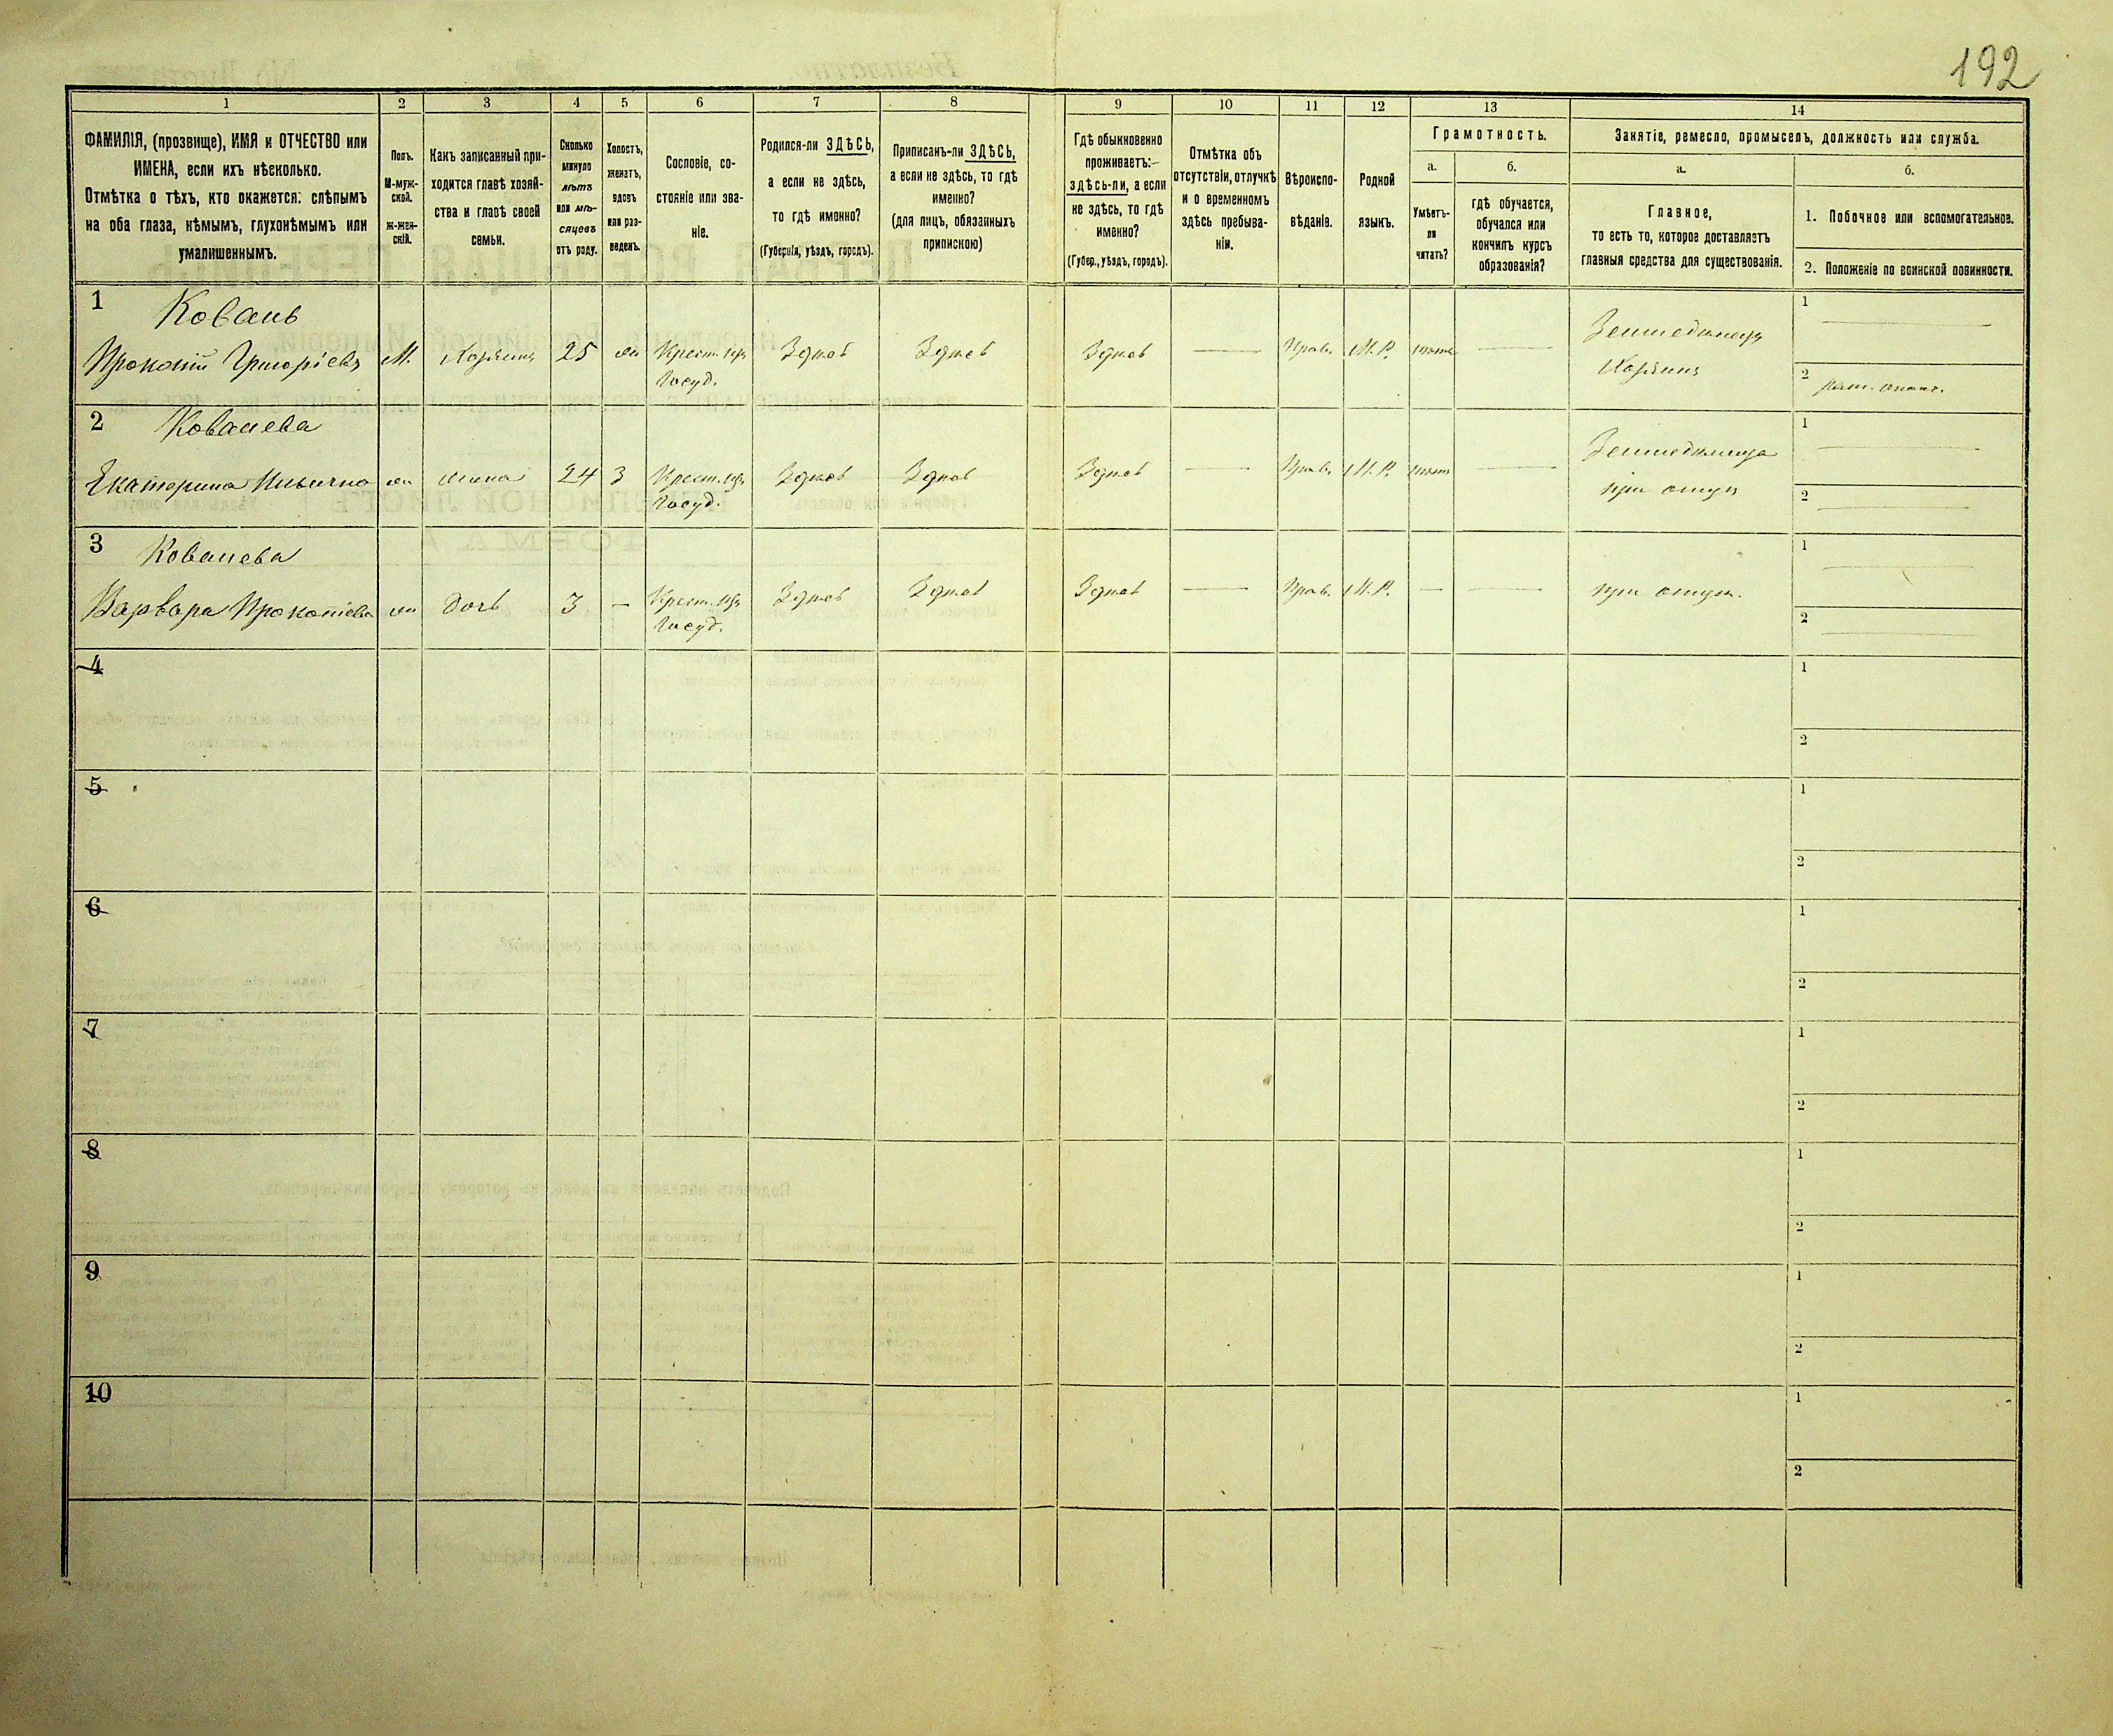 192
1 2 3 4 5 6 7 8 9 10 11 12 13 14
ФАМИЛІЯ, (прозвище), ИМЯ и ОТЧЕСТВО или
ИМЕНА, если ихъ нѣсколько.
Отмѣтка о тѣхъ, кто окажется: слѣпымъ
на оба глаза, нѣмымъ, глухонѣмымъ или
умалишеннымъ.
Полъ.
М-муж-
ской.
ж-жен-
скій.
Какъ записанный при-
ходится главѣ хозяй-
ства и главѣ своей
семьи.
Сколько
минуло
лѣтъ
или мѣ-
сяцевъ
отъ роду.
Холостъ,
женатъ,
вдовъ
или раз-
веденъ.
Сословіе, со-
стояніе или зва-
ніе.
Родился-ли ЗДѢСЬ,
а если не здѣсь,
то гдѣ именно?
(Губернія, уѣздъ, городъ).
Приписанъ-ли ЗДѢСЬ,
а если не здѣсь, то гдѣ
именно?
(для лицъ, обязанныхъ
припискою)
Гдѣ обыкновенно
проживаетъ:—
здѣсь-ли, а если
не здѣсь, то гдѣ
именно?
(Губер., уѣздъ, городъ).
Отмѣтка объ
отсутствіи, отлучкѣ
и о временномъ
здѣсь пребыва-
ніи.
Вѣроиспо-
вѣданіе.
Родной
языкъ.
Грамотность.
а. б.
Умѣетъ-
ли
читать?
гдѣ обучается,
обучался или
кончилъ курсъ
образованія?
Занятіе, ремесло, промыселъ, должность или служба.
а. б.
Главное,
то есть то, которое доставляетъ
главныя средства для существованія.
1. Побочное или вспомогательное.
2. Положеніе по воинской повинности.
1 Ковань
Прокопій Григоріевъ М. Хозяинъ 25 Крест. изъ Здѣсь Здѣсь Здѣсь — Прав. М.Р. нѣтъ — Земледѣлецъ 1 —
Госуд. Хозяинъ 2
2 Кованева
Екатерина жена 24 З Крест. изъ Здѣсь Здѣсь Здѣсь — Прав. М.Р. нѣтъ — Земледѣлица 1 —
Госуд. при 2 —
3 Кованева
Варвара Прокопіева дочь 3 — Крест. изъ Здѣсь Здѣсь Здѣсь — Прав. М.Р. — — при 1 —
Госуд. 2 —
4 1
2
5 1
2
6 1
2
7 1
2
8 1
2
9 1
2
10 1
2